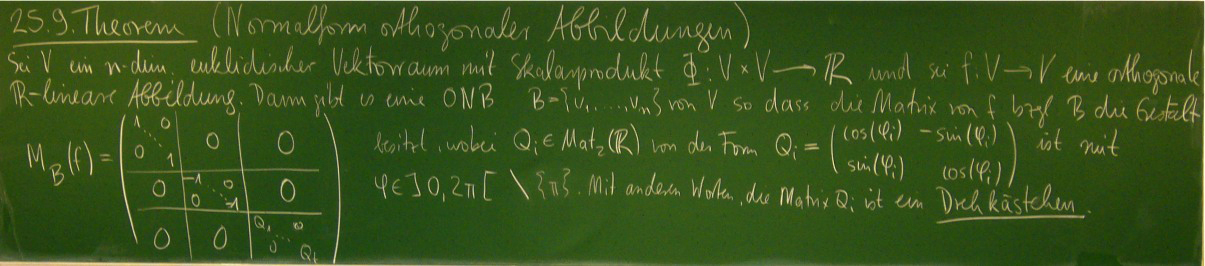 25.9. Theorem (Normalform orthogonaler Abbildungen)
Sei V ein n-dim. euklidischer Vektorraum mit Skalarprodukt Φ: V × V → ℝ und sei f: V → V eine orthogonale
ℝ-lineare Abbildung. Dann gibt es eine ONB B={v₁, ..., vₙ} von V so dass die Matrix von f bzgl. B die Gestalt
M_B(f) = ( 1 0 ⋱ 0 1 | 0 | 0
0 | -1 0 ⋱ 0 -1 | 0
0 | 0 | Q₁ 0 ⋱ 0 Qₜ )
besitzt, wobei Qᵢ ∈ Mat₂(ℝ) von der Form Qᵢ = ( cos(φᵢ) -sin(φᵢ) sin(φᵢ) cos(φᵢ) ) ist mit
φ ∈ ]0, 2π[ \ {π}. Mit anderen Worten, die Matrix Qᵢ ist ein Drehkästchen.